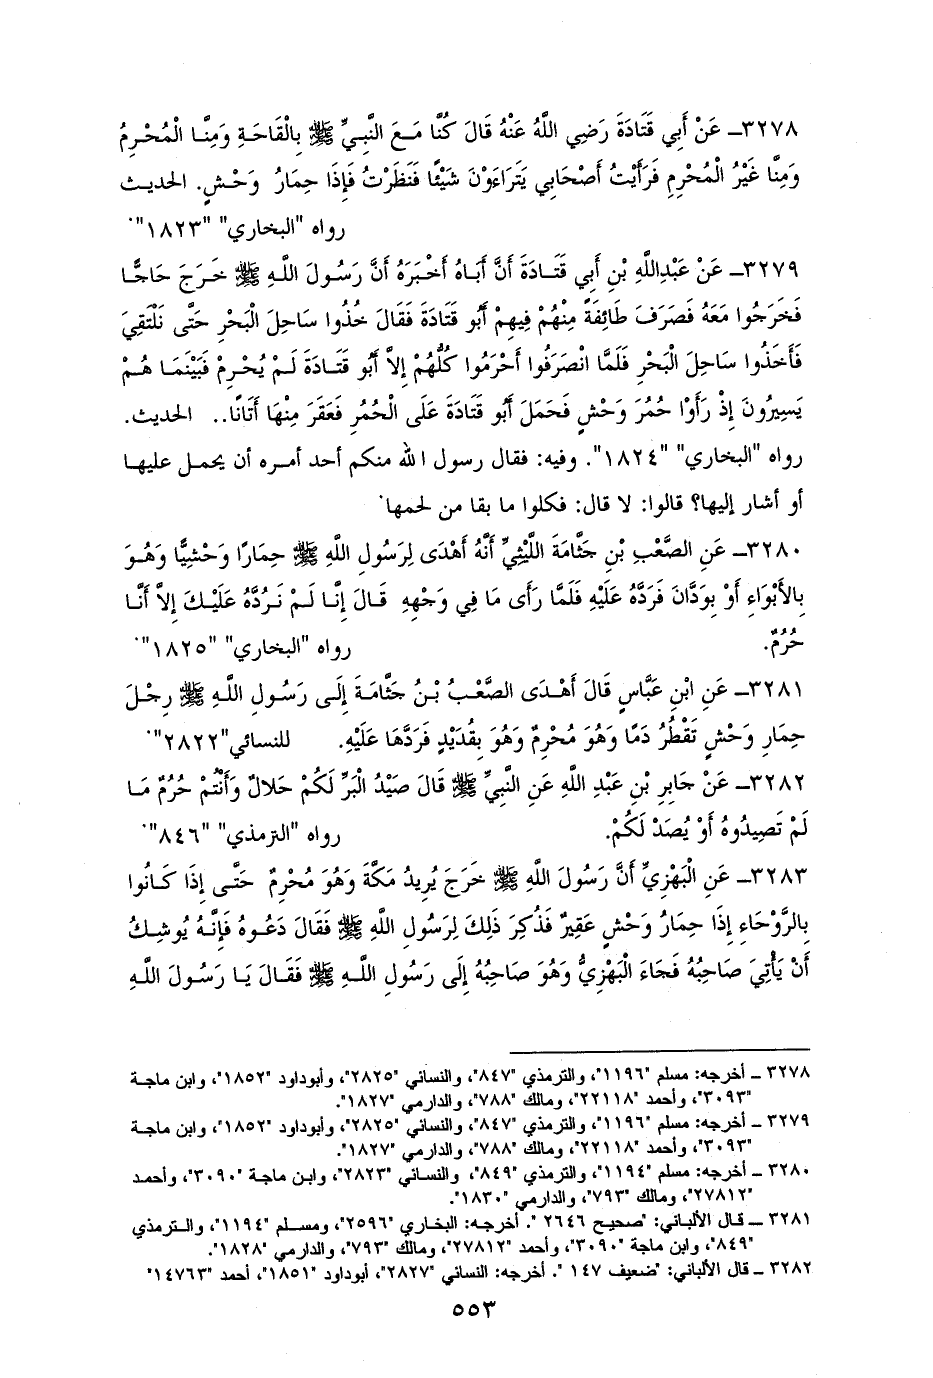 ٣٢٧٨ـ عَنْ أَبِي قَتَادَةَ رَضِي اللَّهُ عَنْهُ قَالَ كُنَّا مَعَ النَّبِيِّ ﷺ بِالْقَاحَةِ وَمِنَّا الْمُحْرِمُ
وَمِنَّا غَيْرُ الْمُحْرِمِ فَرَأَيْتُ أَصْحَابِي يَتَرَاءَوْنَ شَيْئًا فَنَظَرْتُ فَإِذَا حِمَارُ وَحْشٍ. الحديث
رواه "البخاري" "١٨٢٣".
٣٢٧٩ـ عَنْ عَبْدِاللَّهِ بْنِ أَبِي قَتَادَةَ أَنَّ أَبَاهُ أَخْبَرَهُ أَنَّ رَسُولَ اللَّهِ ﷺ خَرَجَ حَاجًّا
فَخَرَجُوا مَعَهُ فَصَرَفَ طَائِفَةً مِنْهُمْ فِيهِمْ أَبُو قَتَادَةَ فَقَالَ خُذُوا سَاحِلَ الْبَحْرِ حَتَّى نَلْتَقِيَ
فَأَخَذُوا سَاحِلَ الْبَحْرِ فَلَمَّا انْصَرَفُوا أَحْرَمُوا كُلُّهُمْ إِلاَّ أَبُو قَتَادَةَ لَمْ يُحْرِمْ فَبَيْنَمَا هُمْ
يَسِيرُونَ إِذْ رَأَوْا حُمُرَ وَحْشٍ فَحَمَلَ أَبُو قَتَادَةَ عَلَى الْحُمُرِ فَعَقَرَ مِنْهَا أَتَانًا.. الحديث.
رواه "البخاري" "١٨٢٤". وفيه: فقال رسول الله منكم أحد أمره أن يحمل عليها
أو أشار إليها؟ قالوا: لا قال: فكلوا ما بقا من لحمها.
٣٢٨٠ـ عَنِ الصَّعْبِ بْنِ جَثَّامَةَ اللَّيْثِيِّ أَنَّهُ أَهْدَى لِرَسُولِ اللَّهِ ﷺ حِمَارًا وَحْشِيًّا وَهُوَ
بِالأَبْوَاءِ أَوْ بِوَدَّانَ فَرَدَّهُ عَلَيْهِ فَلَمَّا رَأَى مَا فِي وَجْهِهِ قَالَ إِنَّا لَمْ نَرُدَّهُ عَلَيْكَ إِلاَّ أَنَّا
حُرُمٌ. رواه "البخاري" "١٨٢٥".
٣٢٨١ـ عَنِ ابْنِ عَبَّاسٍ قَالَ أَهْدَى الصَّعْبُ بْنُ جَثَّامَةَ إِلَى رَسُولِ اللَّهِ ﷺ رِجْلَ
حِمَارِ وَحْشٍ تَقْطُرُ دَمًا وَهُوَ مُحْرِمٌ وَهُوَ بِقُدَيْدٍ فَرَدَّهَا عَلَيْهِ. للنسائي"٢٨٢٢".
٣٢٨٢ـ عَنْ جَابِرِ بْنِ عَبْدِ اللَّهِ عَنِ النَّبِيِّ ﷺ قَالَ صَيْدُ الْبَرِّ لَكُمْ حَلالٌ وَأَنْتُمْ حُرُمٌ مَا
لَمْ تَصِيدُوهُ أَوْ يُصَدْ لَكُمْ. رواه "الترمذي" "٨٤٦".
٣٢٨٣ـ عَنِ الْبَهْزِيِّ أَنَّ رَسُولَ اللَّهِ ﷺ خَرَجَ يُرِيدُ مَكَّةَ وَهُوَ مُحْرِمٌ حَتَّى إِذَا كَانُوا
بِالرَّوْحَاءِ إِذَا حِمَارُ وَحْشٍ عَقِيرٌ فَذُكِرَ ذَلِكَ لِرَسُولِ اللَّهِ ﷺ فَقَالَ دَعُوهُ فَإِنَّهُ يُوشِكُ
أَنْ يَأْتِيَ صَاحِبُهُ فَجَاءَ الْبَهْزِيُّ وَهُوَ صَاحِبُهُ إِلَى رَسُولِ اللَّهِ ﷺ فَقَالَ يَا رَسُولَ اللَّهِ
٣٢٧٨ ـ أخرجه: مسلم "١١٩٦"، والترمذي "٨٤٧"، والنسائي "٢٨٢٥"، وأبوداود "١٨٥٢"، وابن ماجة
"٣٠٩٣"، وأحمد "٢٢١١٨"، ومالك "٧٨٨"، والدارمي "١٨٢٧".
٣٢٧٩ ـ أخرجه: مسلم "١١٩٦"، والترمذي "٨٤٧"، والنسائي "٢٨٢٥"، وأبوداود "١٨٥٢"، وابن ماجة
"٣٠٩٣"، وأحمد "٢٢١١٨"، ومالك "٧٨٨"، والدارمي "١٨٢٧".
٣٢٨٠ ـ أخرجه: مسلم "١١٩٤"، والترمذي "٨٤٩"، والنسائي "٢٨٢٣"، وابن ماجة "٣٠٩٠"، وأحمد
"٢٧٨١٢"، ومالك "٧٩٣"، والدارمي "١٨٣٠".
٣٢٨١ ـ قال الألباني: "صحيح ٢٦٤٦ ". أخرجه: البخاري "٢٥٩٦"، ومسلم "١١٩٤"، والترمذي
"٨٤٩"، وابن ماجة "٣٠٩٠"، وأحمد "٢٧٨١٢"، ومالك "٧٩٣"، والدارمي "١٨٢٨".
٣٢٨٢ ـ قال الألباني: "ضعيف ١٤٧ ". أخرجه: النسائي "٢٨٢٧"، أبوداود "١٨٥١"، أحمد "١٤٧٦٣"
٥٥٣